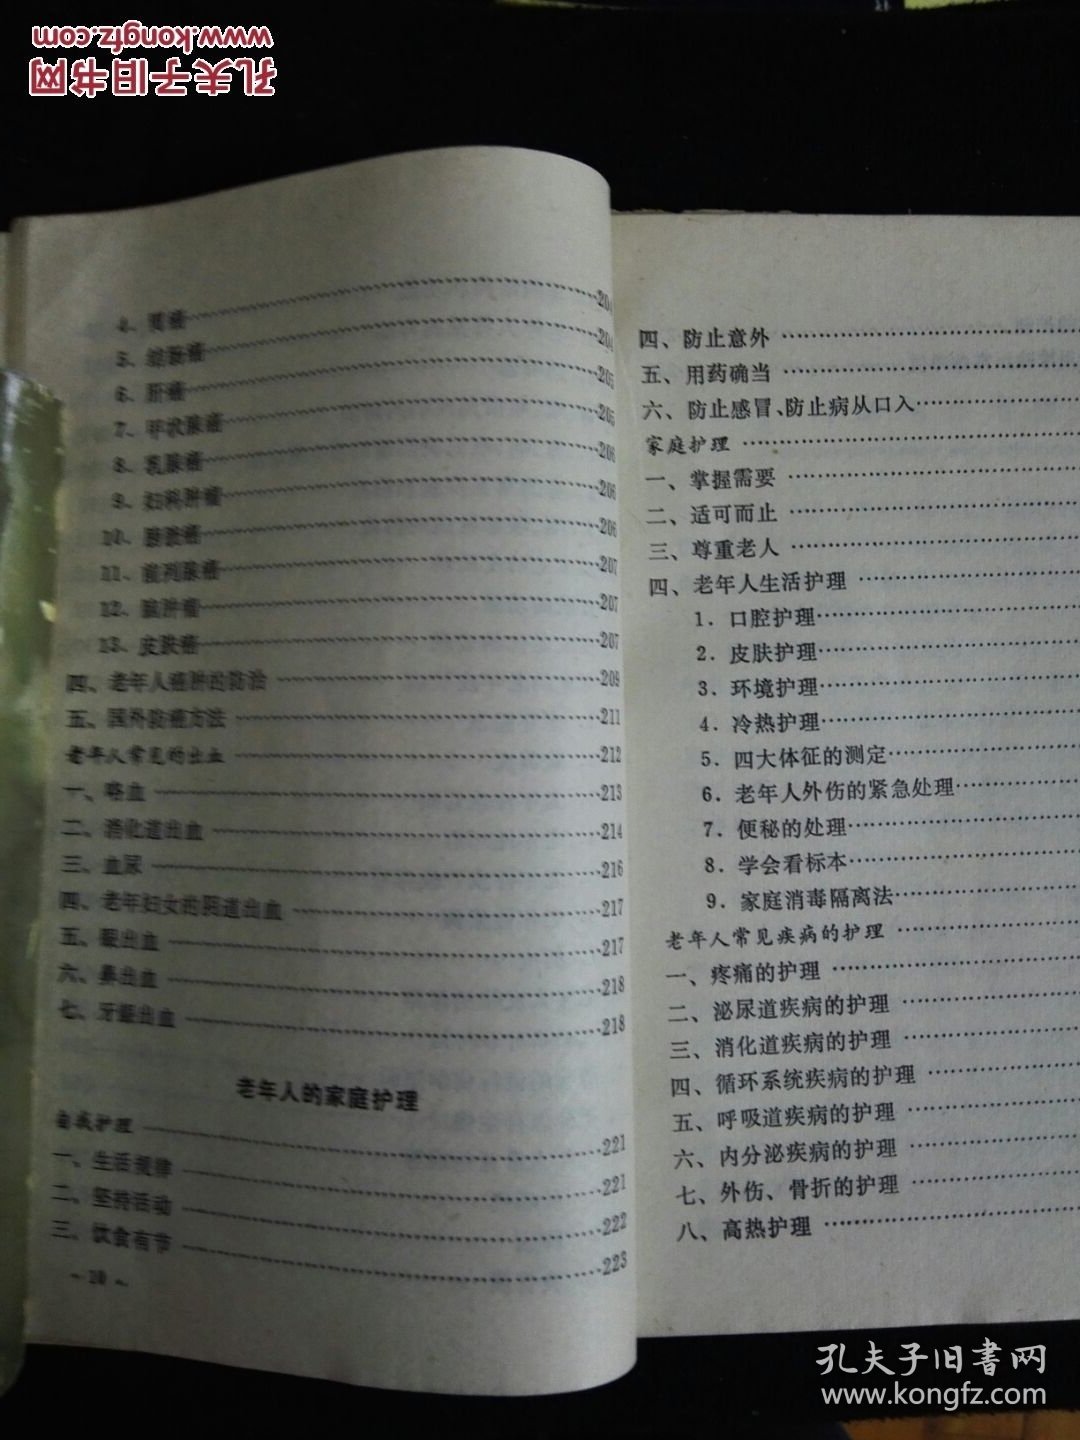 www.kongfz.com
孔夫子旧书网
4、胃癌 204
5、结肠癌 204
6、肝癌 205
7、甲状腺癌 205
8、乳腺癌 206
9、妇科肿瘤 206
10、膀胱癌 206
11、前列腺癌 207
12、脑肿瘤 207
13、皮肤癌 207
四、老年人癌肿的防治 209
五、国外防癌方法 211
老年人常见的出血 212
一、咯血 213
二、消化道出血 214
三、血尿 216
四、老年妇女的阴道出血 217
五、眼出血 217
六、鼻出血 218
七、牙龈出血 218
老年人的家庭护理
自我护理 221
一、生活规律 221
二、坚持活动 222
三、饮食有节 223
10
四、防止意外
五、用药确当
六、防止感冒、防止病从口入
家庭护理
一、掌握需要
二、适可而止
三、尊重老人
四、老年人生活护理
1.口腔护理
2.皮肤护理
3.环境护理
4.冷热护理
5.四大体征的测定
6.老年人外伤的紧急处理
7.便秘的处理
8.学会看标本
9.家庭消毒隔离法
老年人常见疾病的护理
一、疼痛的护理
二、泌尿道疾病的护理
三、消化道疾病的护理
四、循环系统疾病的护理
五、呼吸道疾病的护理
六、内分泌疾病的护理
七、外伤、骨折的护理
八、高热护理
孔夫子旧书网
www.kongfz.com